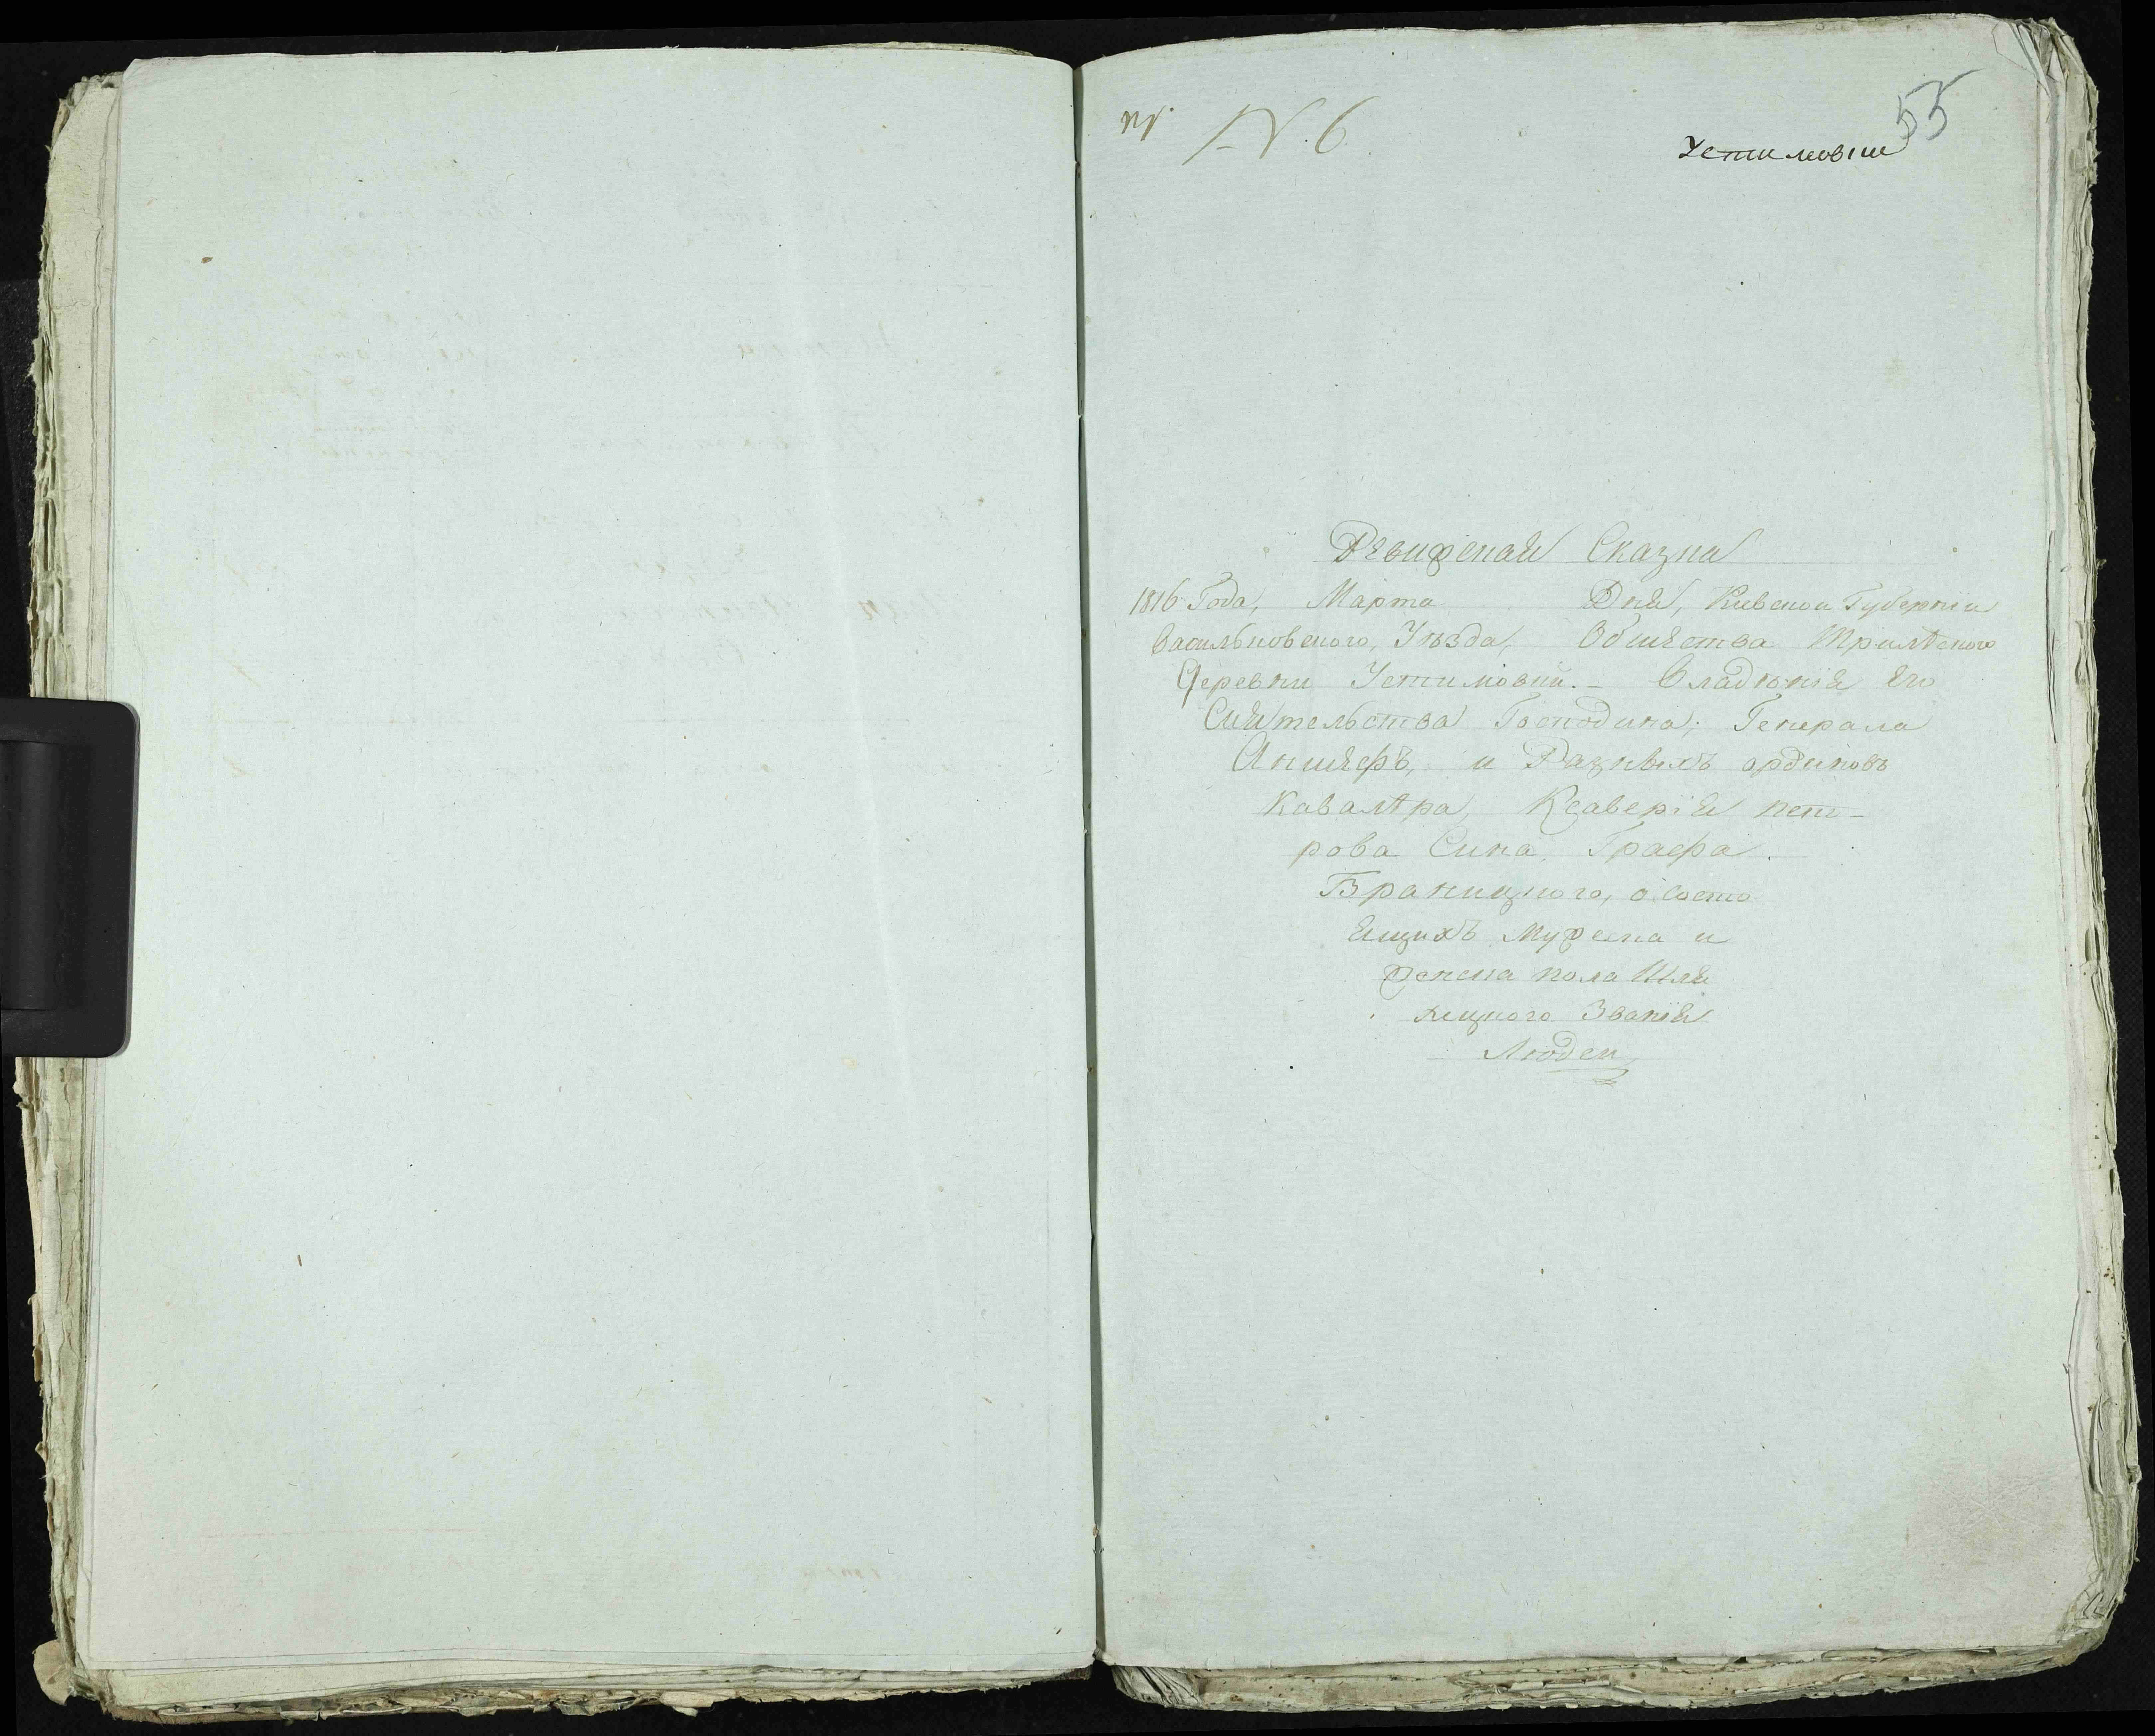 № 6
55
Устимовки
Ревижская Сказка
1816 Года, Марта Дня, Киевской Губерніи
Васильковского, Уѣзда, Общества Трилѣского
Деревни Устимовки. – Владѣнія Его
Сиятельства Господина, Генерала
Аншефъ, и Разныхъ ординовъ
Кавалѣра, Ксаверія Пет-
рова Сина, Графа
Браницкого, о состо
ящихъ Мужеска и
Женска пола Шля
хецкого Званія
Людей